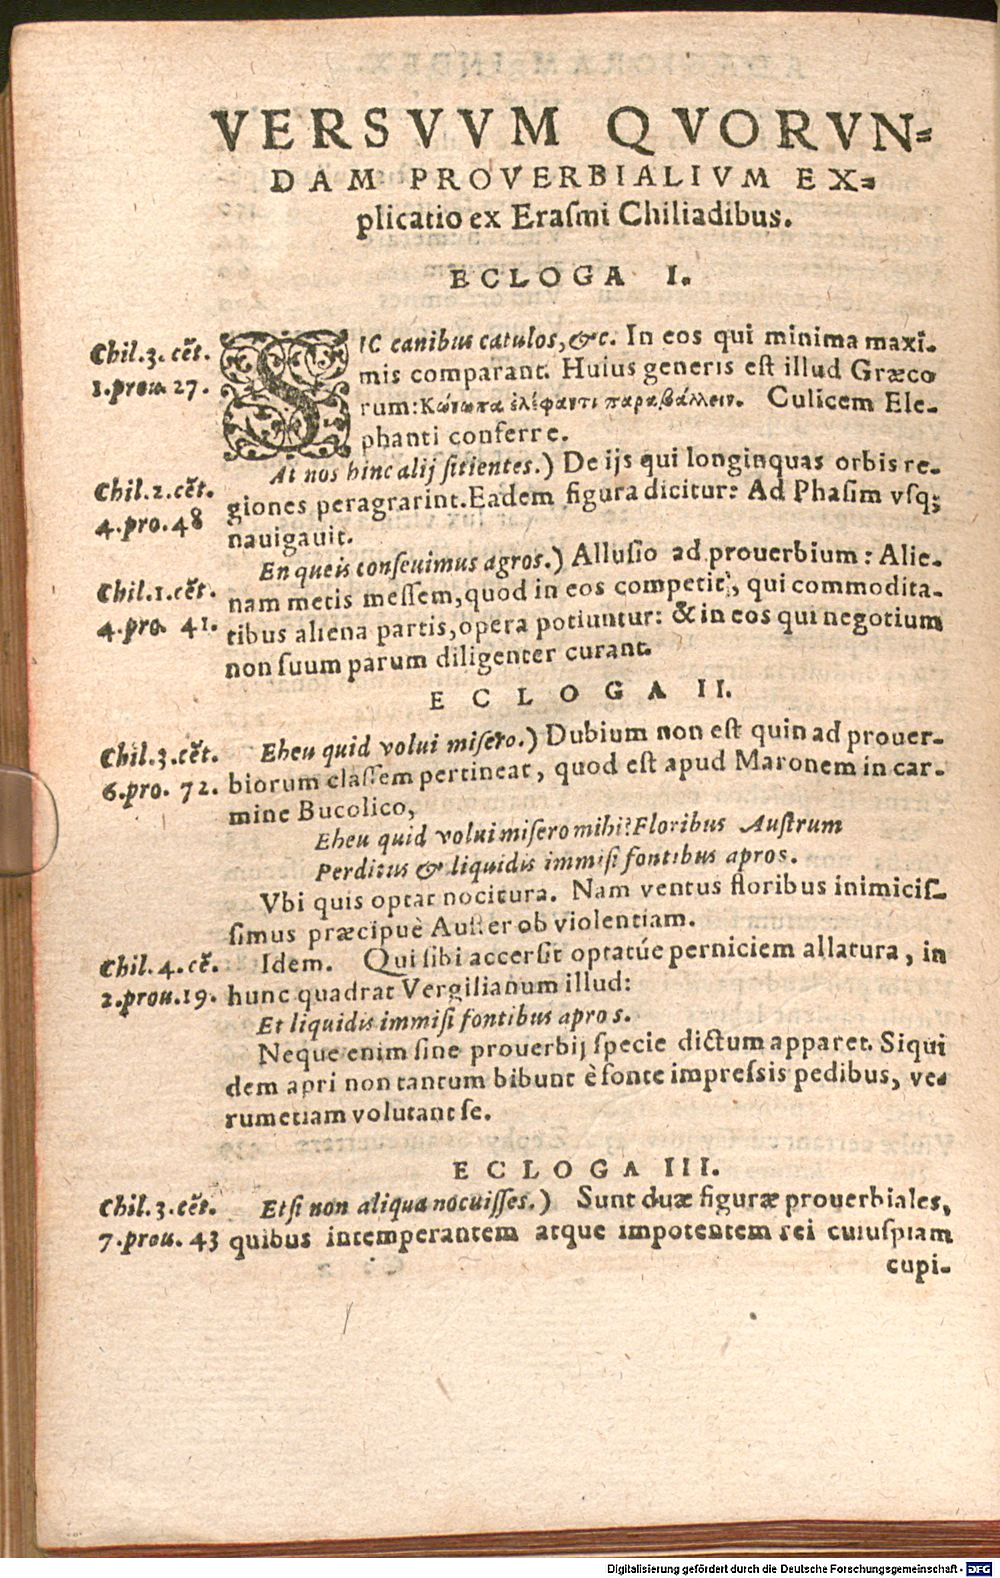 VERSVVM QVORVN-
DAM PROVERBIALIVM EX-
plicatio ex Eraſmi Chiliadibus.
ECLOGA I.
Chil.3. cēt.
1.prou. 27.
SIC canibus catulos, &c. In eos qui minima maxi-
mis comparant. Huius generis eſt illud Græco
rum: Κώνωπα ἐλέφαντι παραβάλλειν. Culicem Ele-
phanti conferre.
At nos hinc alij ſitientes.) De ijs qui longinquas orbis re-
Chil.2.cēt.
4.pro.48
giones peragrarint. Eadem figura dicitur: Ad Phaſim vſq;
nauigauit.
En queis conſeuimus agros.) Alluſio ad prouerbium: Alie-
Chil.1.cēt.
4.pro. 41.
nam metis meſſem, quod in eos competit, qui commodita-
tibus aliena partis, opera potiuntur: & in eos qui negotium
non ſuum parum diligenter curant.
ECLOGA II.
Chil.3.cēt.
6.pro. 72.
Eheu quid volui miſero.) Dubium non eſt quin ad prouer-
biorum claſſem pertineat, quod eſt apud Maronem in car-
mine Bucolico,
Eheu quid volui miſero mihi? Floribus Auſtrum
Perditus & liquidis immiſi fontibus apros.
Vbi quis optat nocitura. Nam ventus floribus inimiciſ-
ſimus præcipuè Auſter ob violentiam.
Chil.4.cē.
2.prou.19.
Idem. Qui ſibi accerſit optatúe perniciem allatura, in
hunc quadrat Vergilianum illud:
Et liquidis immiſi fontibus apros.
Neque enim ſine prouerbij ſpecie dictum apparet. Siqui
dem apri non tantum bibunt è fonte impreſsis pedibus, ve-
rumetiam volutant ſe.
ECLOGA III.
Chil.3.cēt.
7.prou. 43
Etſi non aliqua nocuiſſes.) Sunt duæ figuræ prouerbiales,
quibus intemperantem atque impotentem rei cuiuſpiam
cupi-
Digitalisierung gefördert durch die Deutsche Forschungsgemeinschaft - DFG